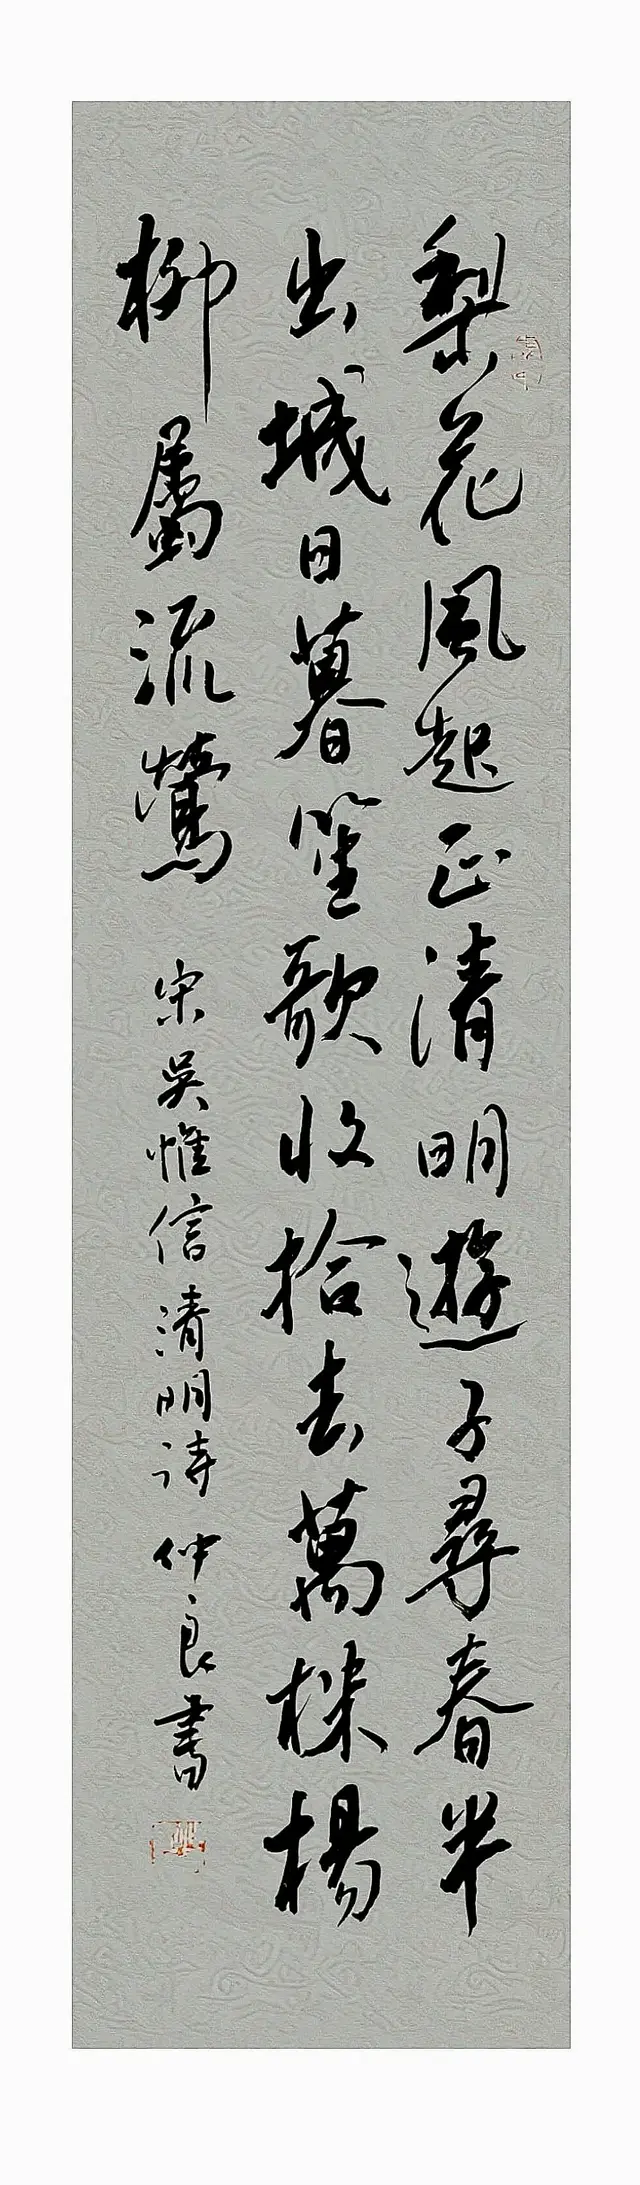 梨花風起正清明遊子尋春半
出城日暮笙歌收拾去萬株楊
柳屬流鶯
宋吳惟信清明诗仲良書